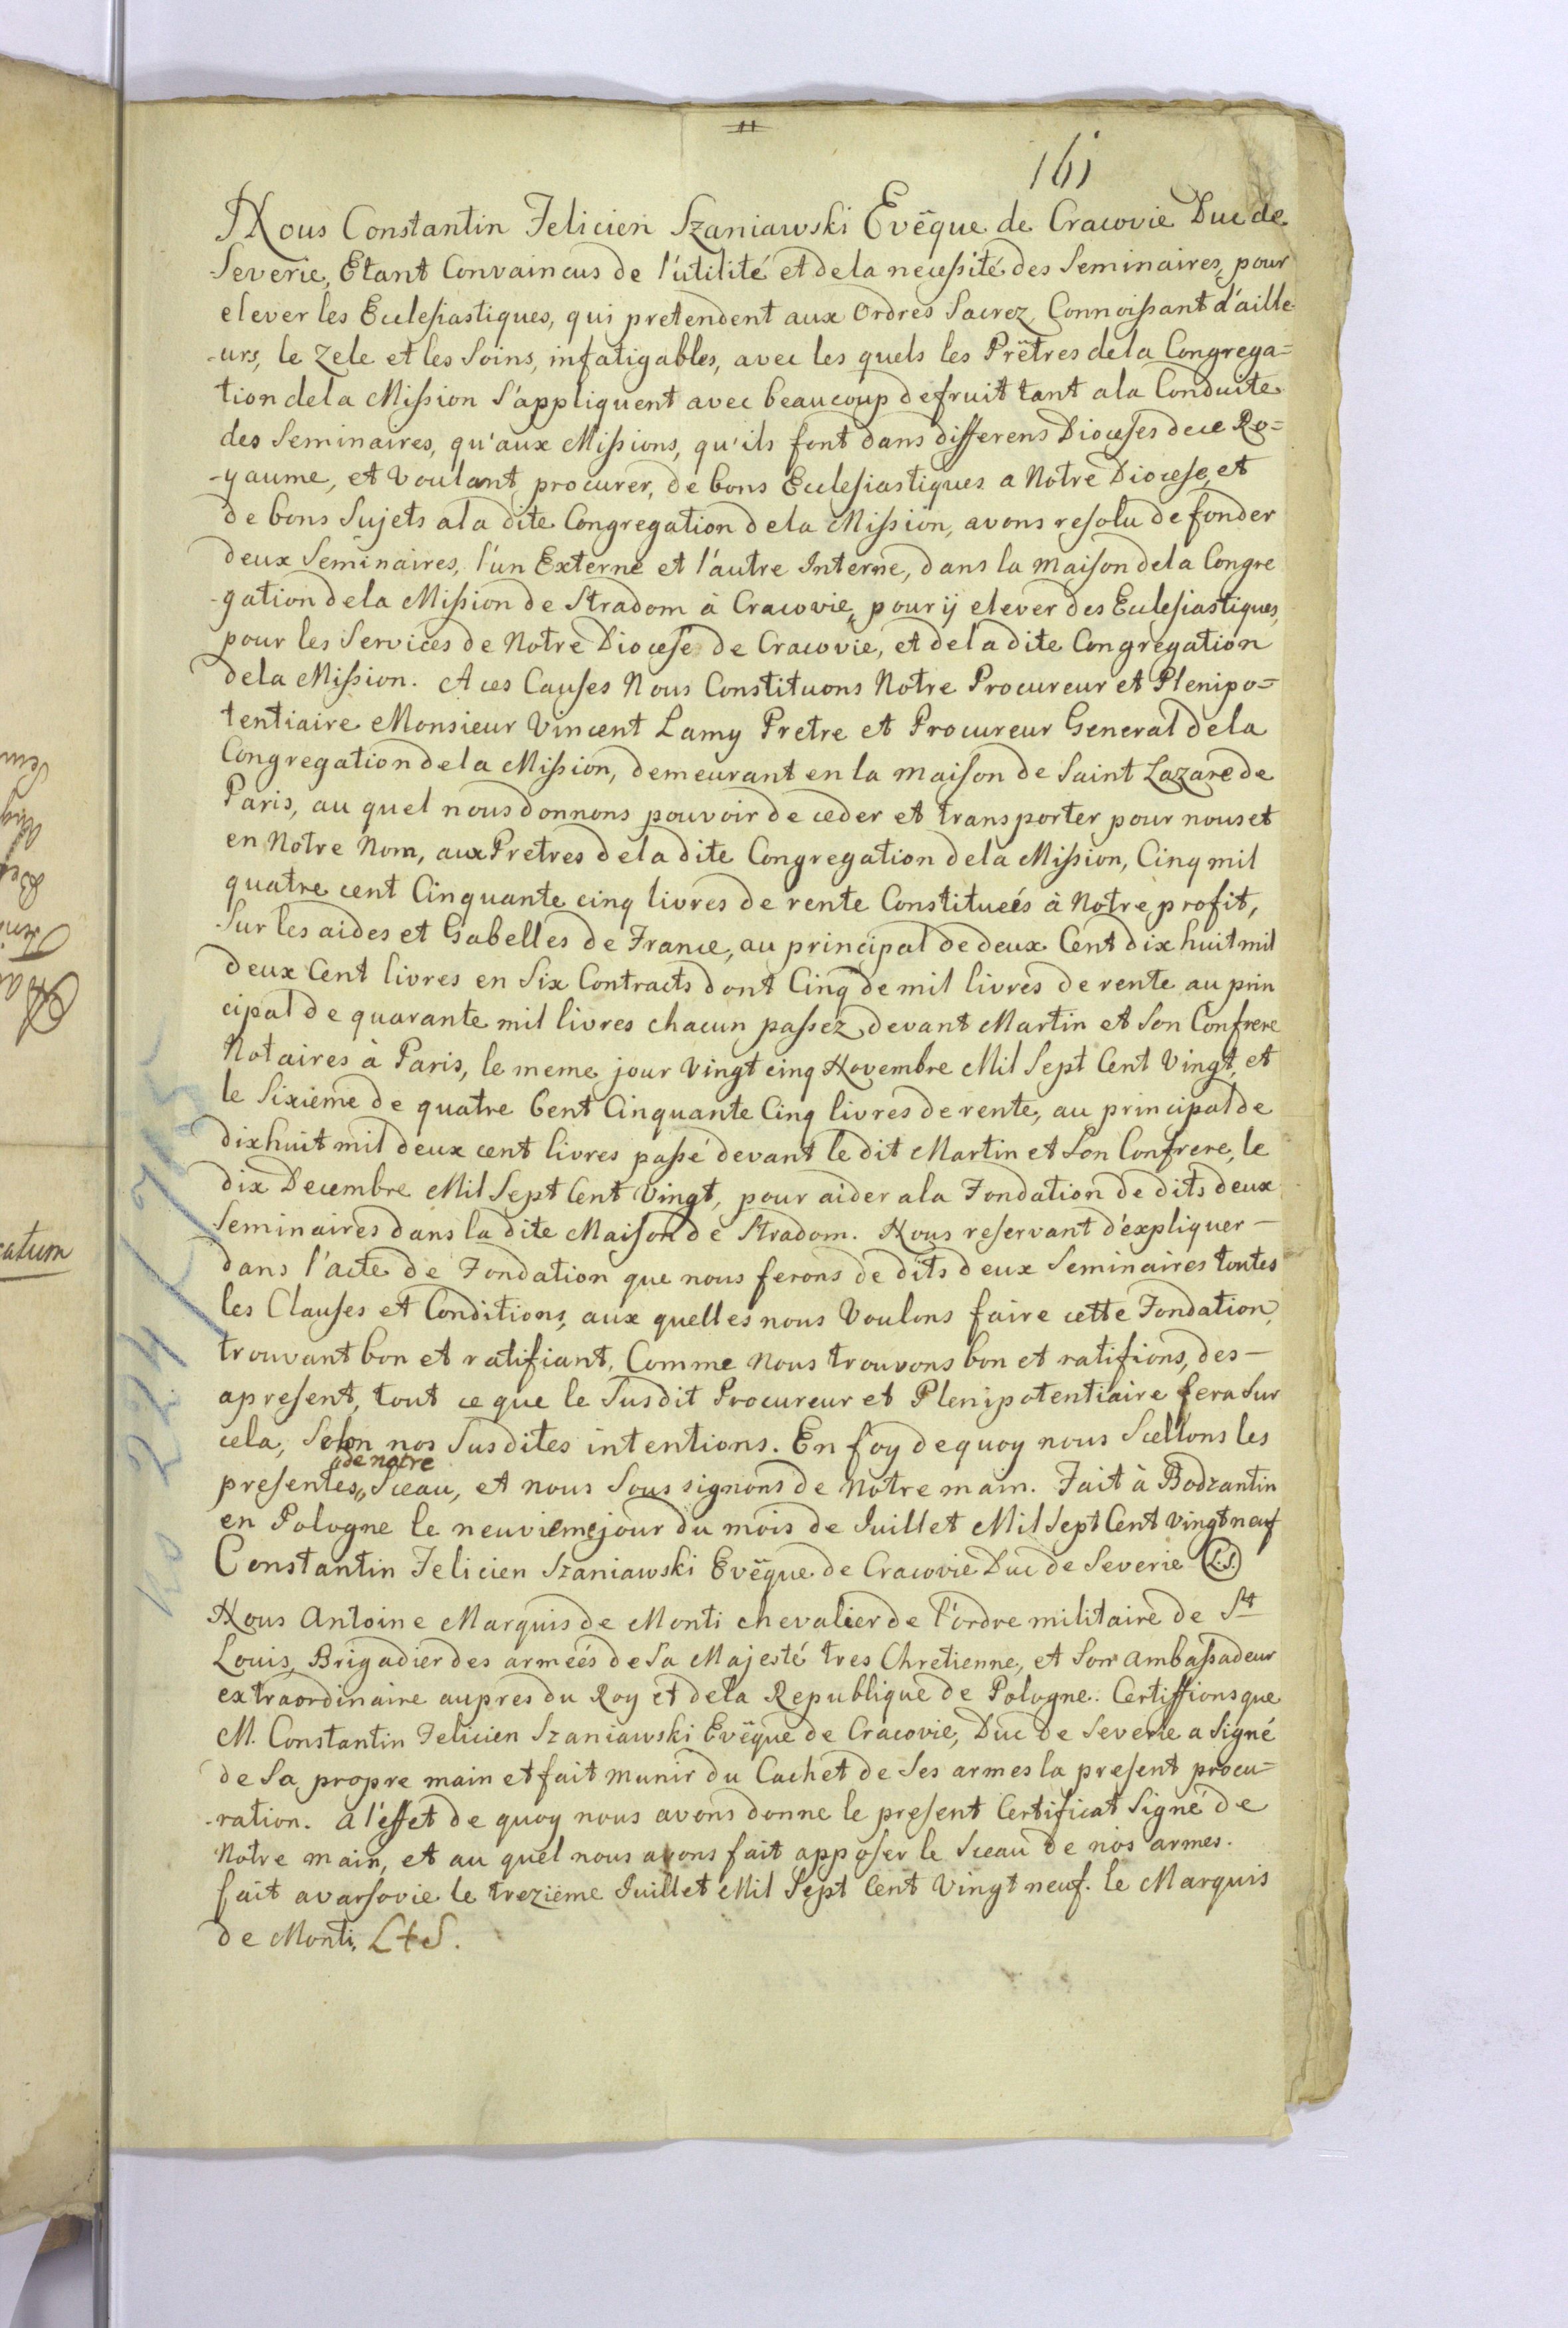 161
Nous Constantin Felicien Szaniawski Evêque de Cracovie Duc de
Severie, Etant Convaincus de l'utilité et de la necessité des Seminaires, pour
elever les Ecclesiastiques, qui pretendent aux Ordres Sacrez, Connoissant d'aille-
-urs, le Zele et les Soins, infatigables, avec les quels les Prêtres de la Congrega=
tion de la Mission s'appliquent avec beaucoup de fruit tant a la Conduite
des Seminaires, qu'aux Missions, qu'ils font dans differens Dioceses de ce Ro=
-yaume, et voulant procurer, de bons Ecclesiastiques a Notre Diocese, et
de bons Sujets a la dite Congregation de la Mission, avons resolu de fonder
deux Seminaires, l'un Externe et l'autre Interne, dans la maison de la Congre
-gation de la Mission de Stradom à Cracovie, pour ij elever des Ecclesiastiques,
pour les Services de Notre Diocese de Cracovie, et de la dite Congregation
de la Mission. A ces Causes Nous Constituons Notre Procureur et Plenipo=
tentiaire Monsieur Vincent Lamy Pretre et Procureur General de la
Congregation de la Mission, demeurant en la maison de Saint Lazare de
Paris, au quel nous donnons pouvoir de ceder et transporter pour nous et
en Notre Nom, aux Pretres de la dite Congregation de la Mission, Cinq mil
quatre cent Cinquante cinq livres de rente Constitueés à Notre profit,
Sur les aides et Gabelles de France, au principal de deux Cent dix huit mil
deux Cent livres en Six Contracts dont Cinq de mil livres de rente au prin
cipal de quarante mil livres chacun passez devant Martin et Son Confrere
Notaires à Paris, le meme jour Vingt cinq Novembre Mil Sept Cent Vingt, et
le Sixieme de quatre Cent Cinquante Cinq livres de rente, au principal de
dix huit mil deux cent livres passé devant le dit Martin et Son Confrere, le
dix Decembre Mil Sept Cent Vingt, pour aider a la Fondation de dits deux
Seminaires dans la dite Maison de Stradom. Nous reservant d'expliquer -
dans l'acte de Fondation que nous ferons de dits deux Seminaires toutes
les Clauses et Conditions, aux quelles nous Voulons faire cette Fondation,
trouvant bon et ratifiant, Comme Nous trouvons bon et ratifions, des -
apresent, tout ce que le Susdit Procureur et Plenipotentiaire fera Sur
cela, Selon nos Susdites intentions. En foy de quoy nous Scellons les
„de notre
presentes„ Sceau, et nous Sous signons de Notre main. Fait à Bodzantin
en Pologne le neuvieme jour du mois de Juillet Mil Sept Cent Vingt neuf
Constantin Felicien Szaniawski Evêque de Cracovie Duc de Severie L.S.
Nous Antoine Marquis de Monti chevalier de l'ordre militaire de St
Louis, Brigadier des armeés de Sa Majesté tres Chretienne, et Son ambassadeur
extraordinaire aupres du Roy et de la Republique de Pologne. Certiffions que
M. Constantin Felicien Szaniawski Evêque de Cracovie, Duc de Severie a Signé
de Sa propre main et fait munir du Cachet de Ses armes la present procu=
-ration. a l'effet de quoy nous avons donne le present Certificat Signé de
Notre main, et au quel nous avons fait apposer le Sceau de nos armes.
fait a varsovie le trezieme Juillet Mil Sept Cent Vingt neuf. le Marquis
de Monti, L+S.
catum